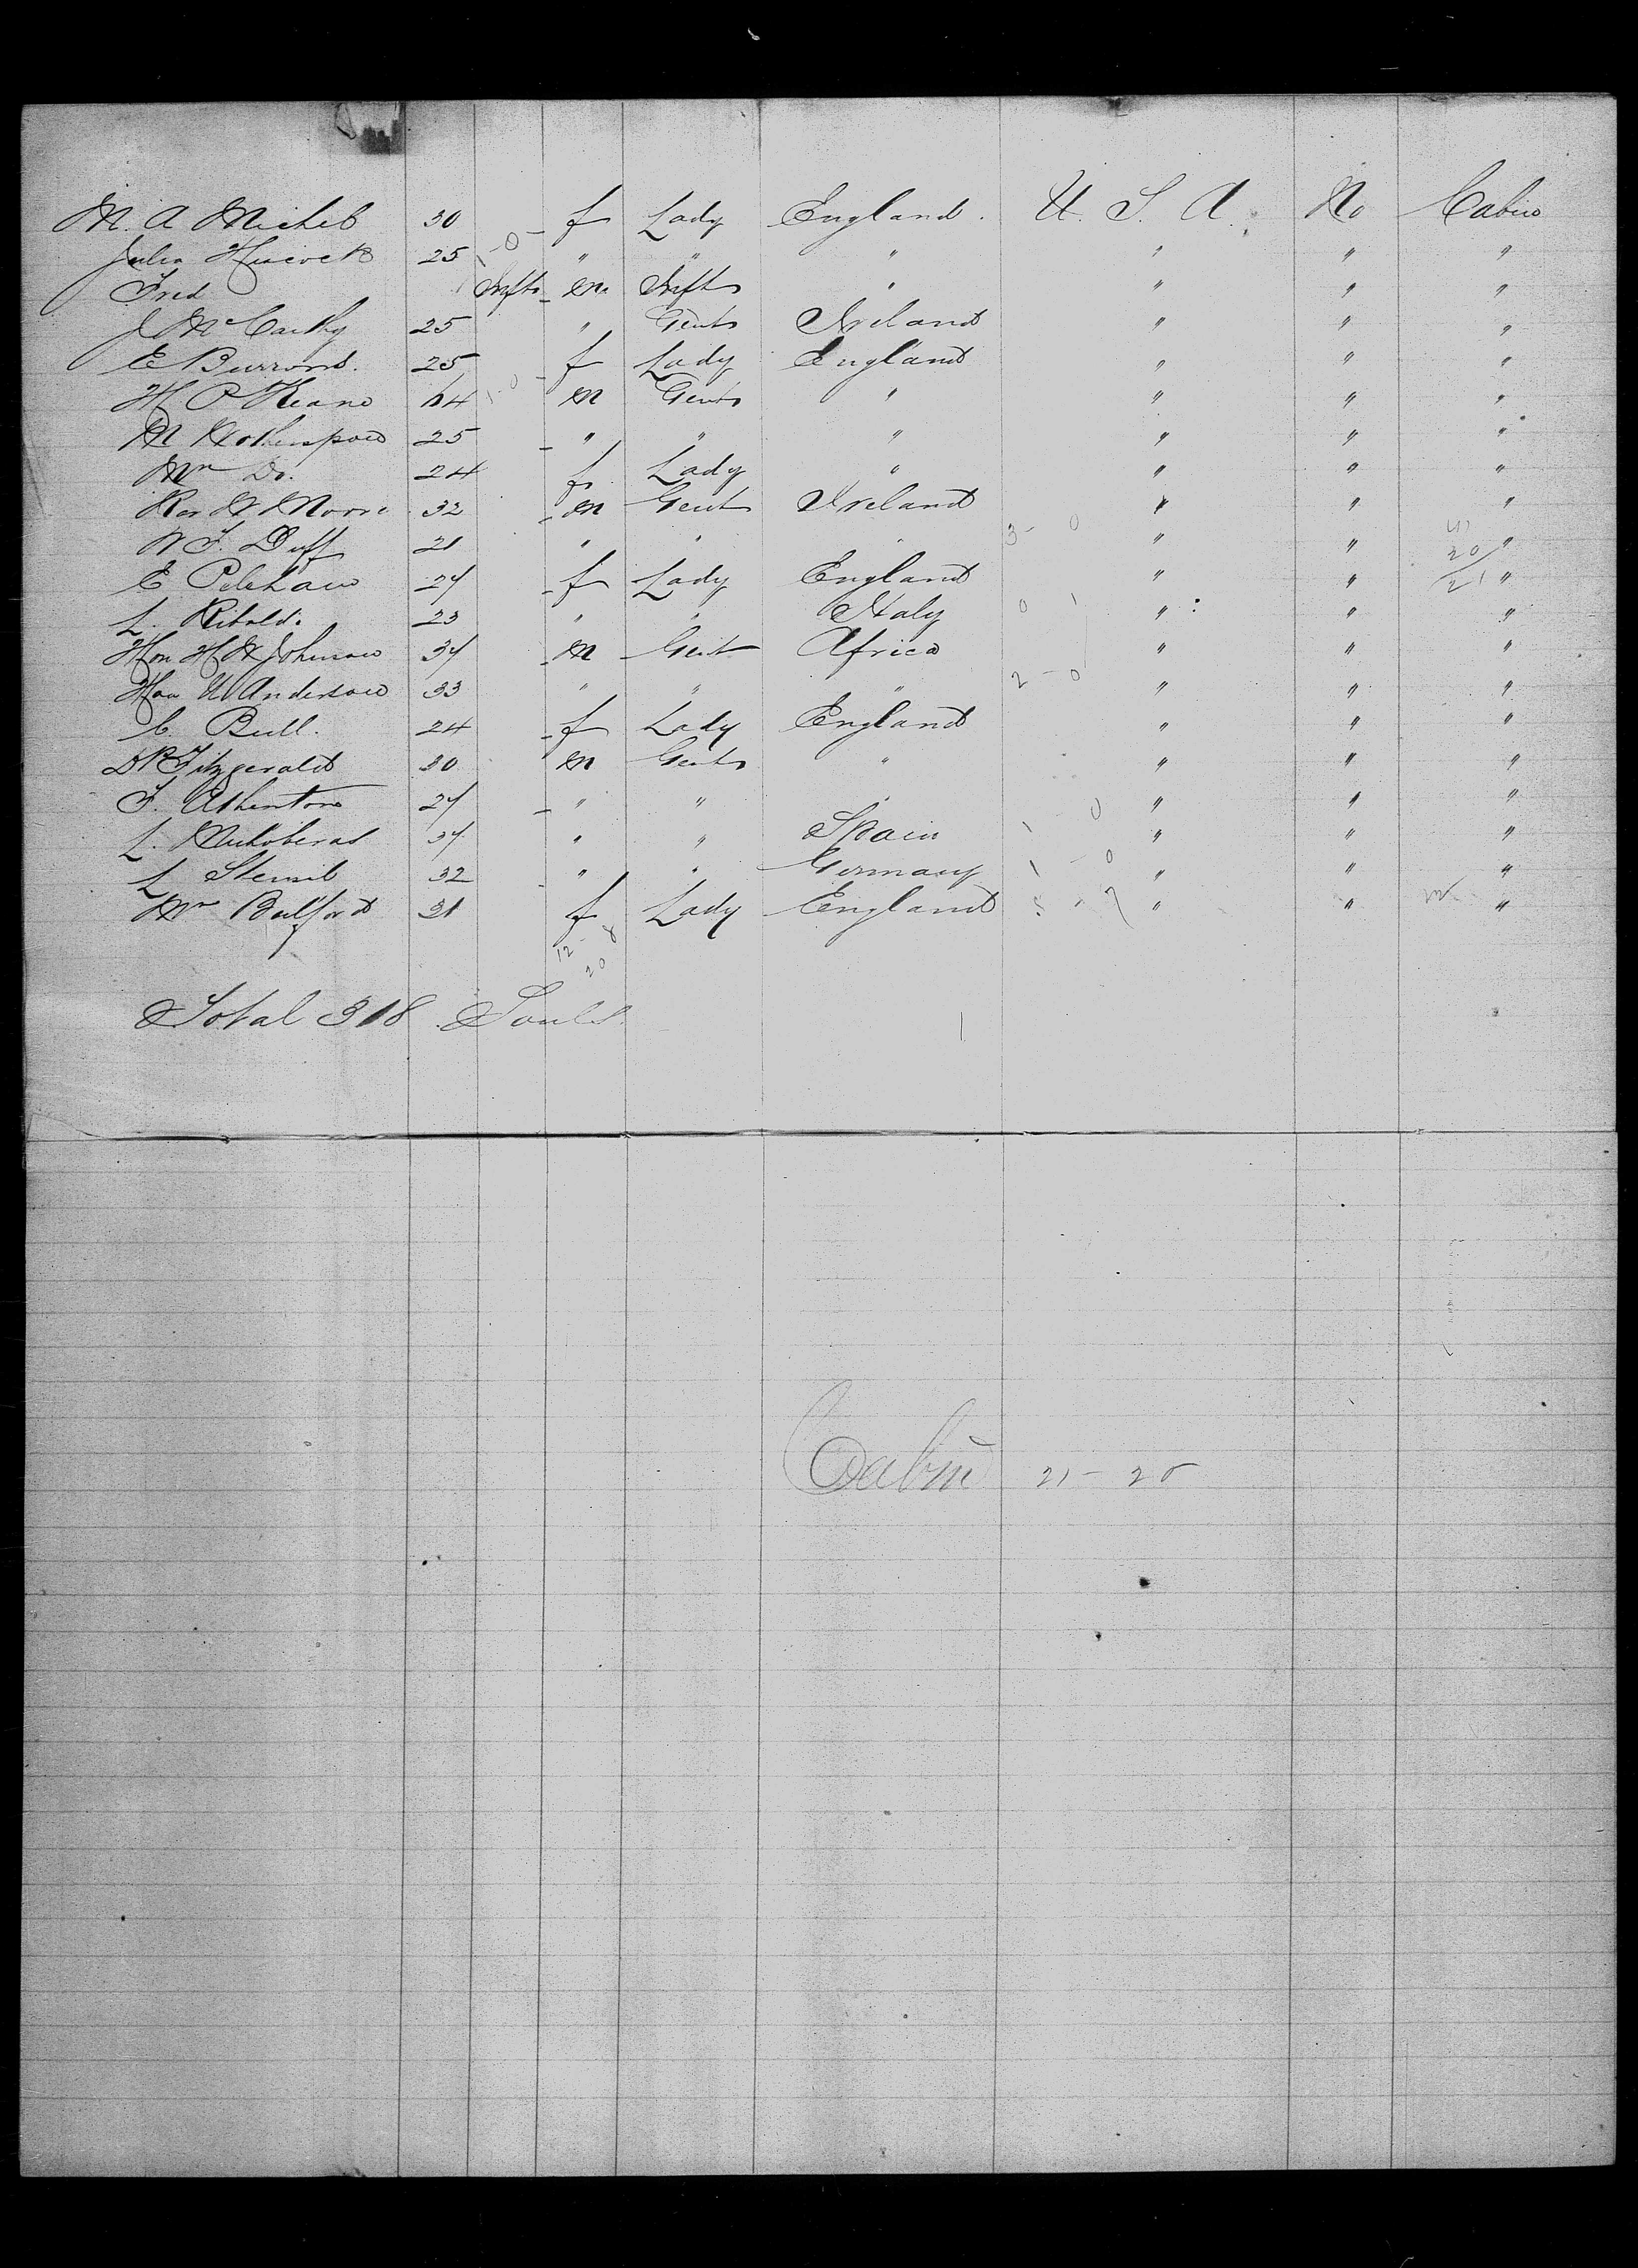 M. A Michel 30 f Lady England. U. S. A. No Cabin
Julia Hiscock 25 -0- " " " " " "
Fred Inft m Inft " " " "
J McCarthy 25 " Gent Ireland " " "
E Burrows. 25 f Lady England " " "
H P Keane 44 m Gent " " " "
M Wotherspoon 25 " " " " " "
Mrs Do. 24 f Lady " " " "
Rev W Moore 32 m Gent Ireland " " "
W F. Duff 21 " " " 3- 0 " " 20 "
E Pelham 27 f Lady England " " 21 "
L. Riboldi 23 " " Italy 0 1 " " "
Hon H W Johnson 37 m Gent Africa " " "
Hon W Anderson 33 " " " 2-0 " " "
C. Bull. 24 f Lady England " " "
Dr Fitzgerald 30 m Gent " " " "
F. Athenton 27 " " " 0 " " "
L. 37 " " Spain 1 " " "
L 32 " " Germany 1 - 0 " " "
Mrs Balford 31 f Lady England 7 " " "
12 - 8
20
Total 318 Souls.
Cabin 21 - 20